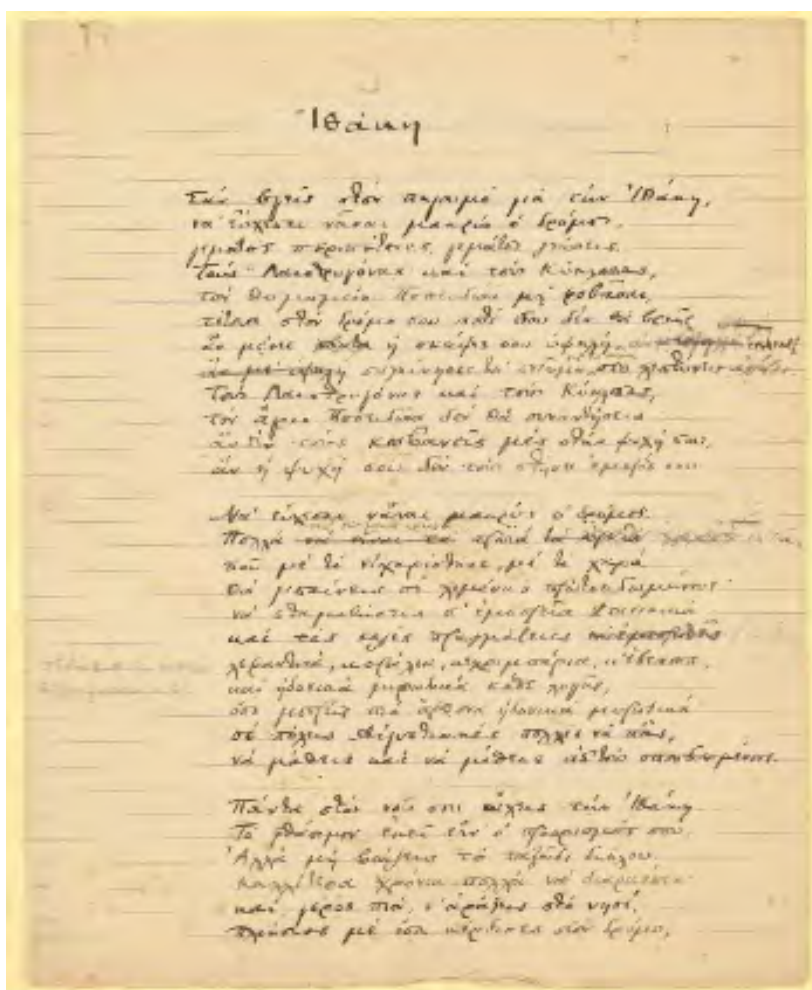 Ἰθάκη
Σὰν βγεῖς στὸν πηγαιμὸ γιὰ τὴν Ἰθάκη,
νὰ εὔχεσαι νἆναι μακρὺς ὁ δρόμος,
γεμάτος περιπέτειες, γεμάτος γνώσεις.
Τοὺς Λαιστρυγόνας καὶ τοὺς Κύκλωπας,
τὸν θυμωμένο Ποσειδῶνα μὴ φοβᾶσαι,
τέτοια στὸν δρόμο σου ποτέ σου δὲν θὰ βρεῖς
ἂν μένει ἡ σκέψις σου ὑψηλή,
Τοὺς Λαιστρυγόνας καὶ τοὺς Κύκλωπας,
τὸν ἄγριο Ποσειδῶνα δὲν θὰ συναντήσεις
ἂν δὲν τοὺς κουβανεῖς μὲς στὴν ψυχή σου,
ἂν ἡ ψυχή σου δὲν τοὺς στήνει ἐμπρός σου
Νὰ εὔχεσαι νἆναι μακρὺς ὁ δρόμος.
Πολλὰ
ποῦ μὲ τί εὐχαρίστησι, μὲ τί χαρὰ
θὰ μπαίνεις σὲ λιμένας πρωτοειδωμένους·
νὰ σταματήσεις σ' ἐμπορεῖα Φοινικικὰ
καὶ τὲς καλὲς πραγμάτειες
σεντέφια, κοράλλια, κεχριμπάρια, κ' ἔβενους,
καὶ ἡδονικὰ μυρωδικὰ κάθε λογῆς,
ὅσο μπορεῖς πιὸ ἄφθονα ἡδονικὰ μυρωδικὰ
σὲ πόλεις Αἰγυπτιακὲς πολλὲς νὰ πᾷς,
νὰ μάθεις καὶ νὰ μάθεις ἀπ' τοὺς σπουδασμένους.
Πάντα στὸν νοῦ σου νἄχεις τὴν Ἰθάκη
Τὸ φθάσιμον ἐκεῖ εἶν' ὁ προορισμός σου.
Ἀλλὰ μὴ βιάζεις τὸ ταξεῖδι διόλου.
Καλλίτερα χρόνια πολλὰ νὰ διαρκέσει·
καὶ γέρος πιά, ν' ἀράξεις στὸ νησί,
πλούσιος μὲ ὅσα κέρδισες στὸν δρόμο,